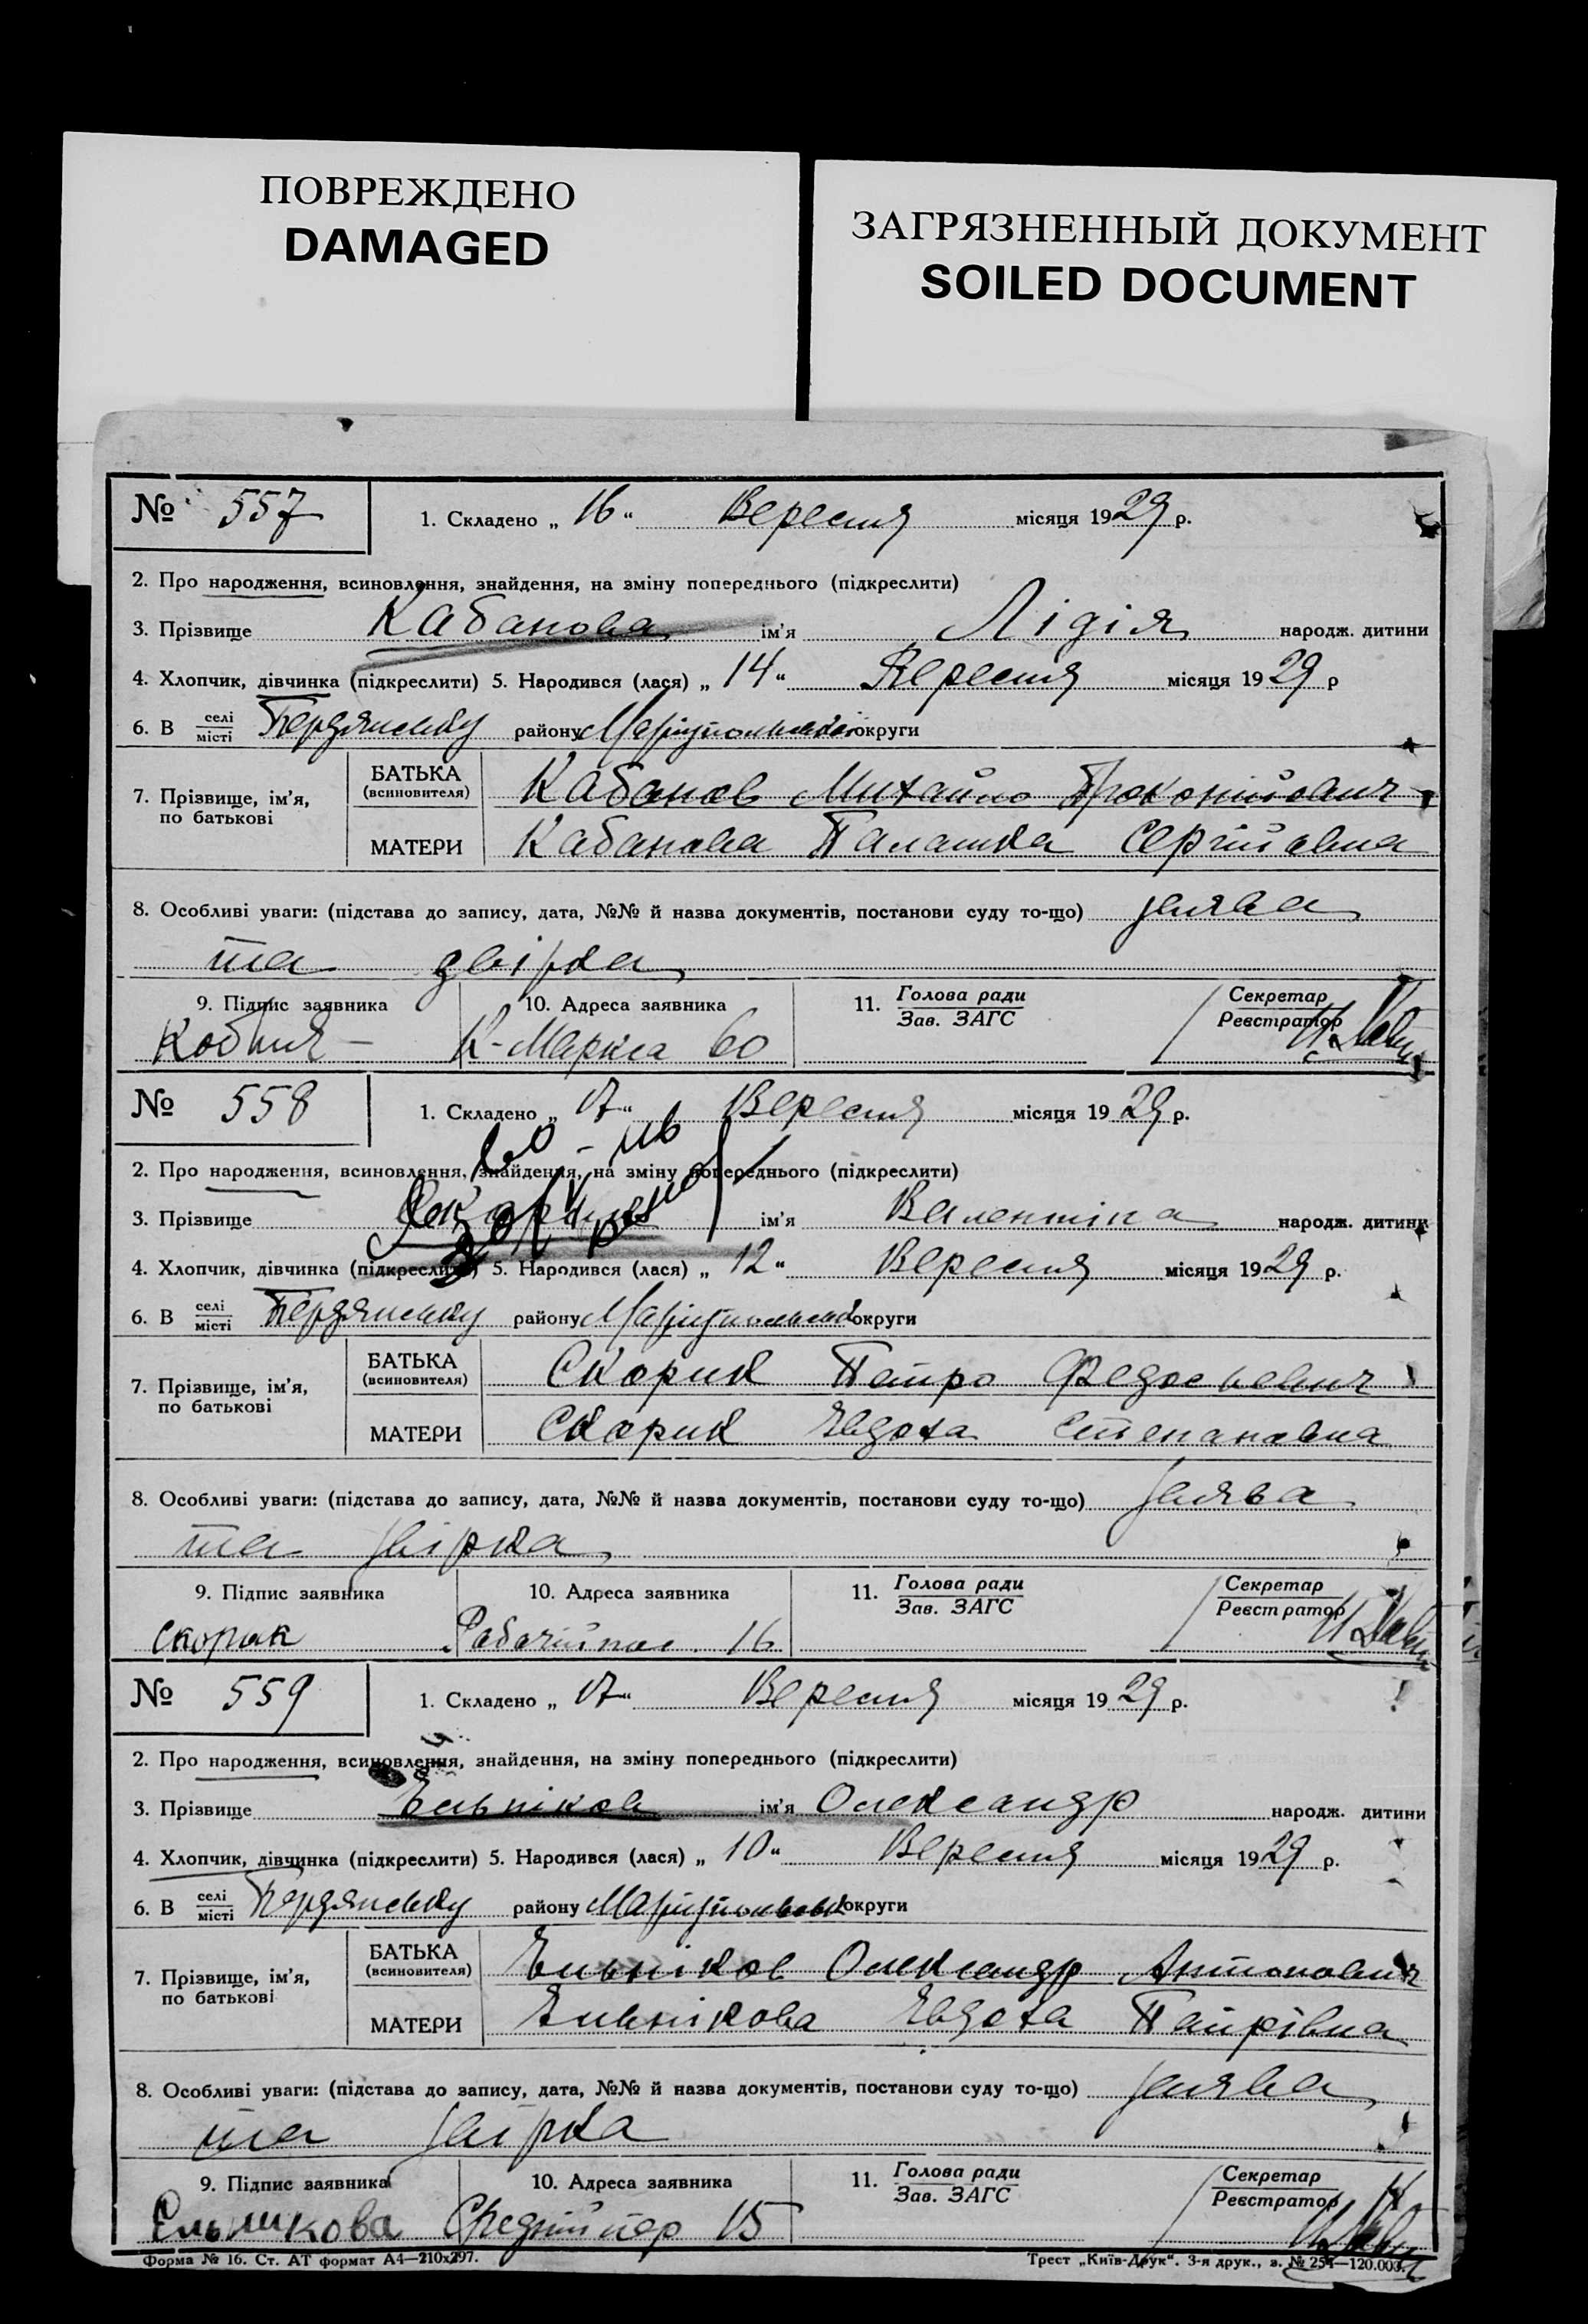 ПОВРЕЖДЕНО
DAMAGED
ЗАГРЯЗНЕННЫЙ ДОКУМЕНТ
SOILED DOCUMENT
№ 557
1. Складено „ 16 “ Вересня місяця 1929 р.
2. Про народження, всиновлення, знайдення, на зміну попереднього (підкреслити)
3. Прізвище Кабанова ім'я Лідія народж. дитини
4. Хлопчик, дівчинка (підкреслити) 5. Народився (лася) „ 14 “ Вересня місяця 1929 р
6. В селі/місті Бердянську району Маріупольської округи
7. Прізвище, ім'я, по батькові
БАТЬКА (всиновителя) Кабанов Михайло Прокопійович
МАТЕРИ Кабанова Палашка Сергіївна
8. Особливі уваги: (підстава до запису, дата, №№ й назва документів, постанови суду то-що) заява
та звірка
9. Підпис заявника 10. Адреса заявника 11. Голова ради/Зав. ЗАГС Секретар/Реєстратор
К-Маркса 60
№ 558
1. Складено „ 17 “ Вересня місяця 1929 р.
2. Про народження, всиновлення, знайдення, на зміну попереднього (підкреслити)
3. Прізвище Скорик ім'я Валентіна народж. дитини
4. Хлопчик, дівчинка (підкреслити) 5. Народився (лася) „ 12 “ Вересня місяця 1929 р.
6. В селі/місті Бердянську району Маріупольської округи
7. Прізвище, ім'я, по батькові
БАТЬКА (всиновителя) Скорик Петро Федосієвич
МАТЕРИ Скорик Євдоха Степановна
8. Особливі уваги: (підстава до запису, дата, №№ й назва документів, постанови суду то-що) заява
та звірка
9. Підпис заявника 10. Адреса заявника 11. Голова ради/Зав. ЗАГС Секретар/Реєстратор
Скорик 16
№ 559
1. Складено „ 17 “ Вересня місяця 1929 р.
2. Про народження, всиновлення, знайдення, на зміну попереднього (підкреслити)
3. Прізвище Єльніков ім'я Олександр народж. дитини
4. Хлопчик, дівчинка (підкреслити) 5. Народився (лася) „ 10 “ Вересня місяця 1929 р.
6. В селі/місті Бердянську району Маріупольської округи
7. Прізвище, ім'я, по батькові
БАТЬКА (всиновителя) Єльніков Олександр Антонович
МАТЕРИ Єльнікова Євдоха Петрівна
8. Особливі уваги: (підстава до запису, дата, №№ й назва документів, постанови суду то-що) заява
та звірка
9. Підпис заявника 10. Адреса заявника 11. Голова ради/Зав. ЗАГС Секретар/Реєстратор
Ельникова Средній пер 15
Форма № 16. Ст. АТ формат А4—210х297.
Трест „Київ-Друк“. 3-я друк., з. № 254—120.003.